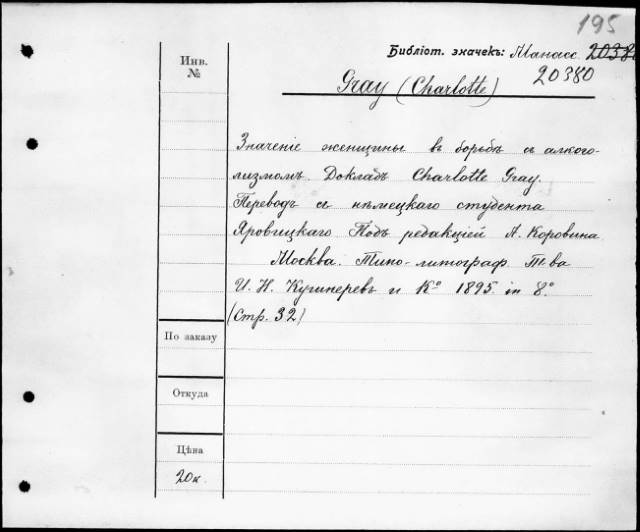 195
Библіот. значекъ: Манасс. 20380
20380
Gray (Charlotte)
Инв.
№
Значеніе женщины въ борьбѣ съ алкого-
лизмомъ. Докладъ Charlotte Gray.
Переводъ съ нѣмецкаго студента
Яровицкаго Подъ редакціей А. Коровина.
Москва. Типо-литограф. Т-ва
И. Н. Кушнеревъ и Кº 1895. in 8º.
(Стр. 32)
По заказу
Откуда
Цѣна
20 к.